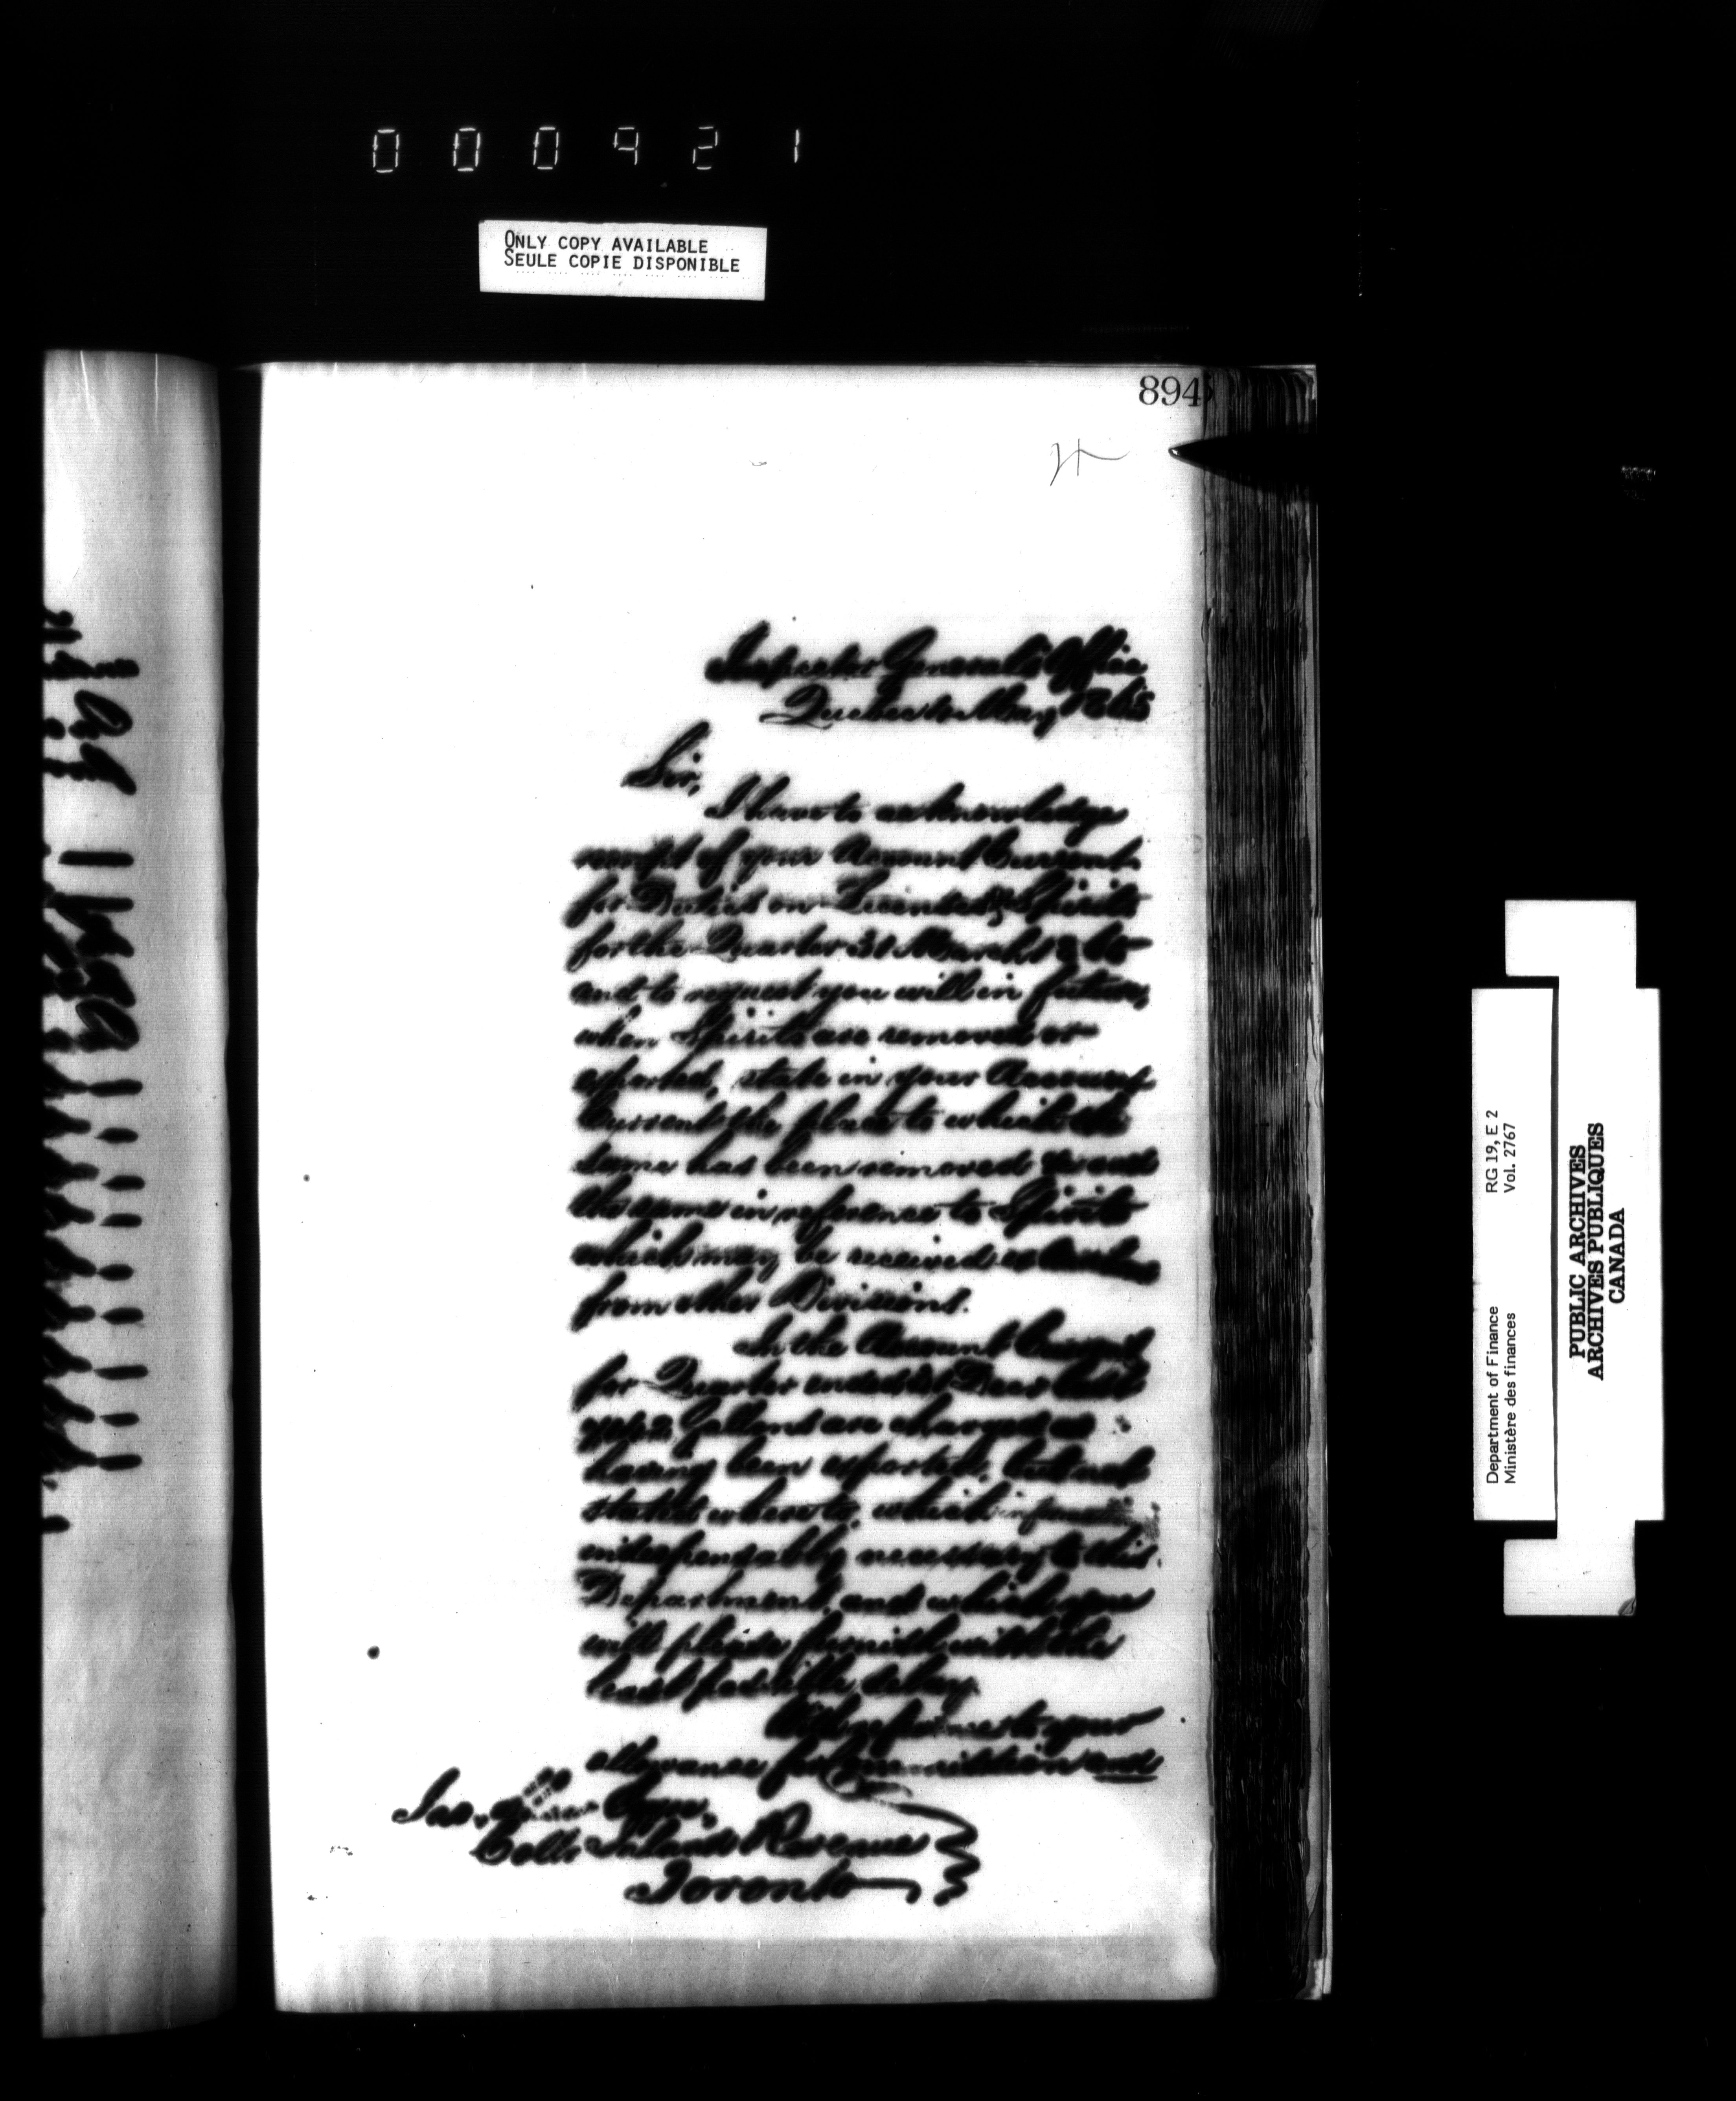 000921
ONLY COPY AVAILABLE
SEULE COPIE DISPONIBLE
894
Inspector General's Office
Quebec May 1865
Sir,
I have to acknowledge
receipt of your Account Current
for Duties on Licenses & Spirits
for the Quarter 31 March 1865
and to request you will in future,
when Spirits are removed or
exported, state in your Account
Current the place to which the
same has been removed and
the same in reference to Spirits
which may be received
from other Divisions.
In the Account Current
for Quarter ended 31 Decr last
Gallons are charged as
having been exported, but not
stated where to, which
indispensably necessary to this
Department, and which you
will please furnish with the
least possible delay.
With reference to your
allowance for and
Jas. Esqre,
Collr Inland Revenue
Toronto
Department of Finance RG 19, E 2
Ministère des finances Vol. 2767
PUBLIC ARCHIVES
ARCHIVES PUBLIQUES
CANADA